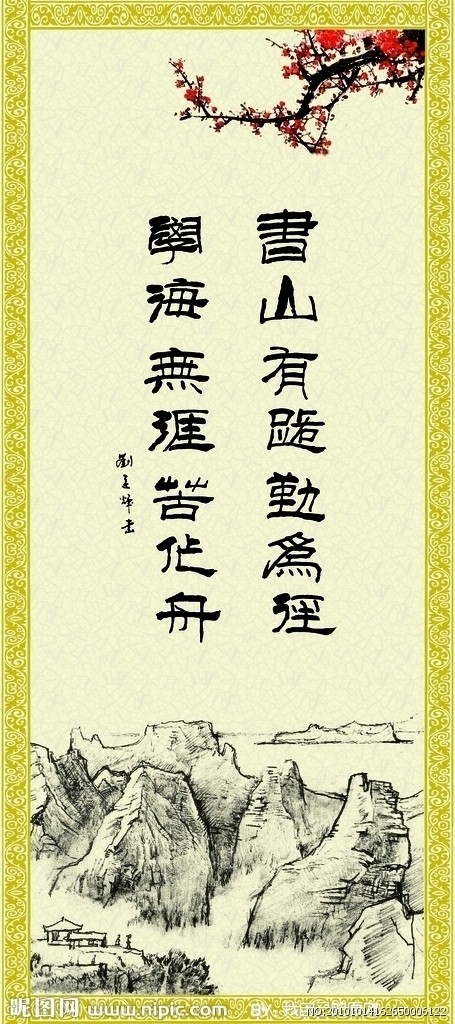 書山有路勤為徑
學海無涯苦作舟
昵图网 www.nipic.com
NO:20101014162650006122